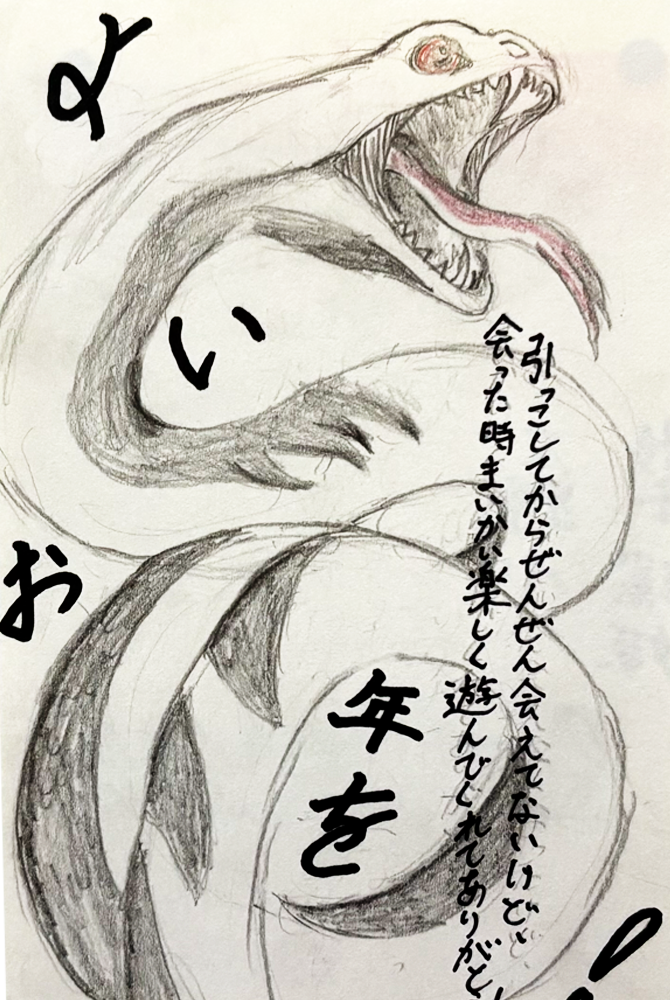 よ
い
お
年を
!
引っこしてからぜんぜん会えてないけど、
会った時まいかい楽しく遊んでくれてありがと!